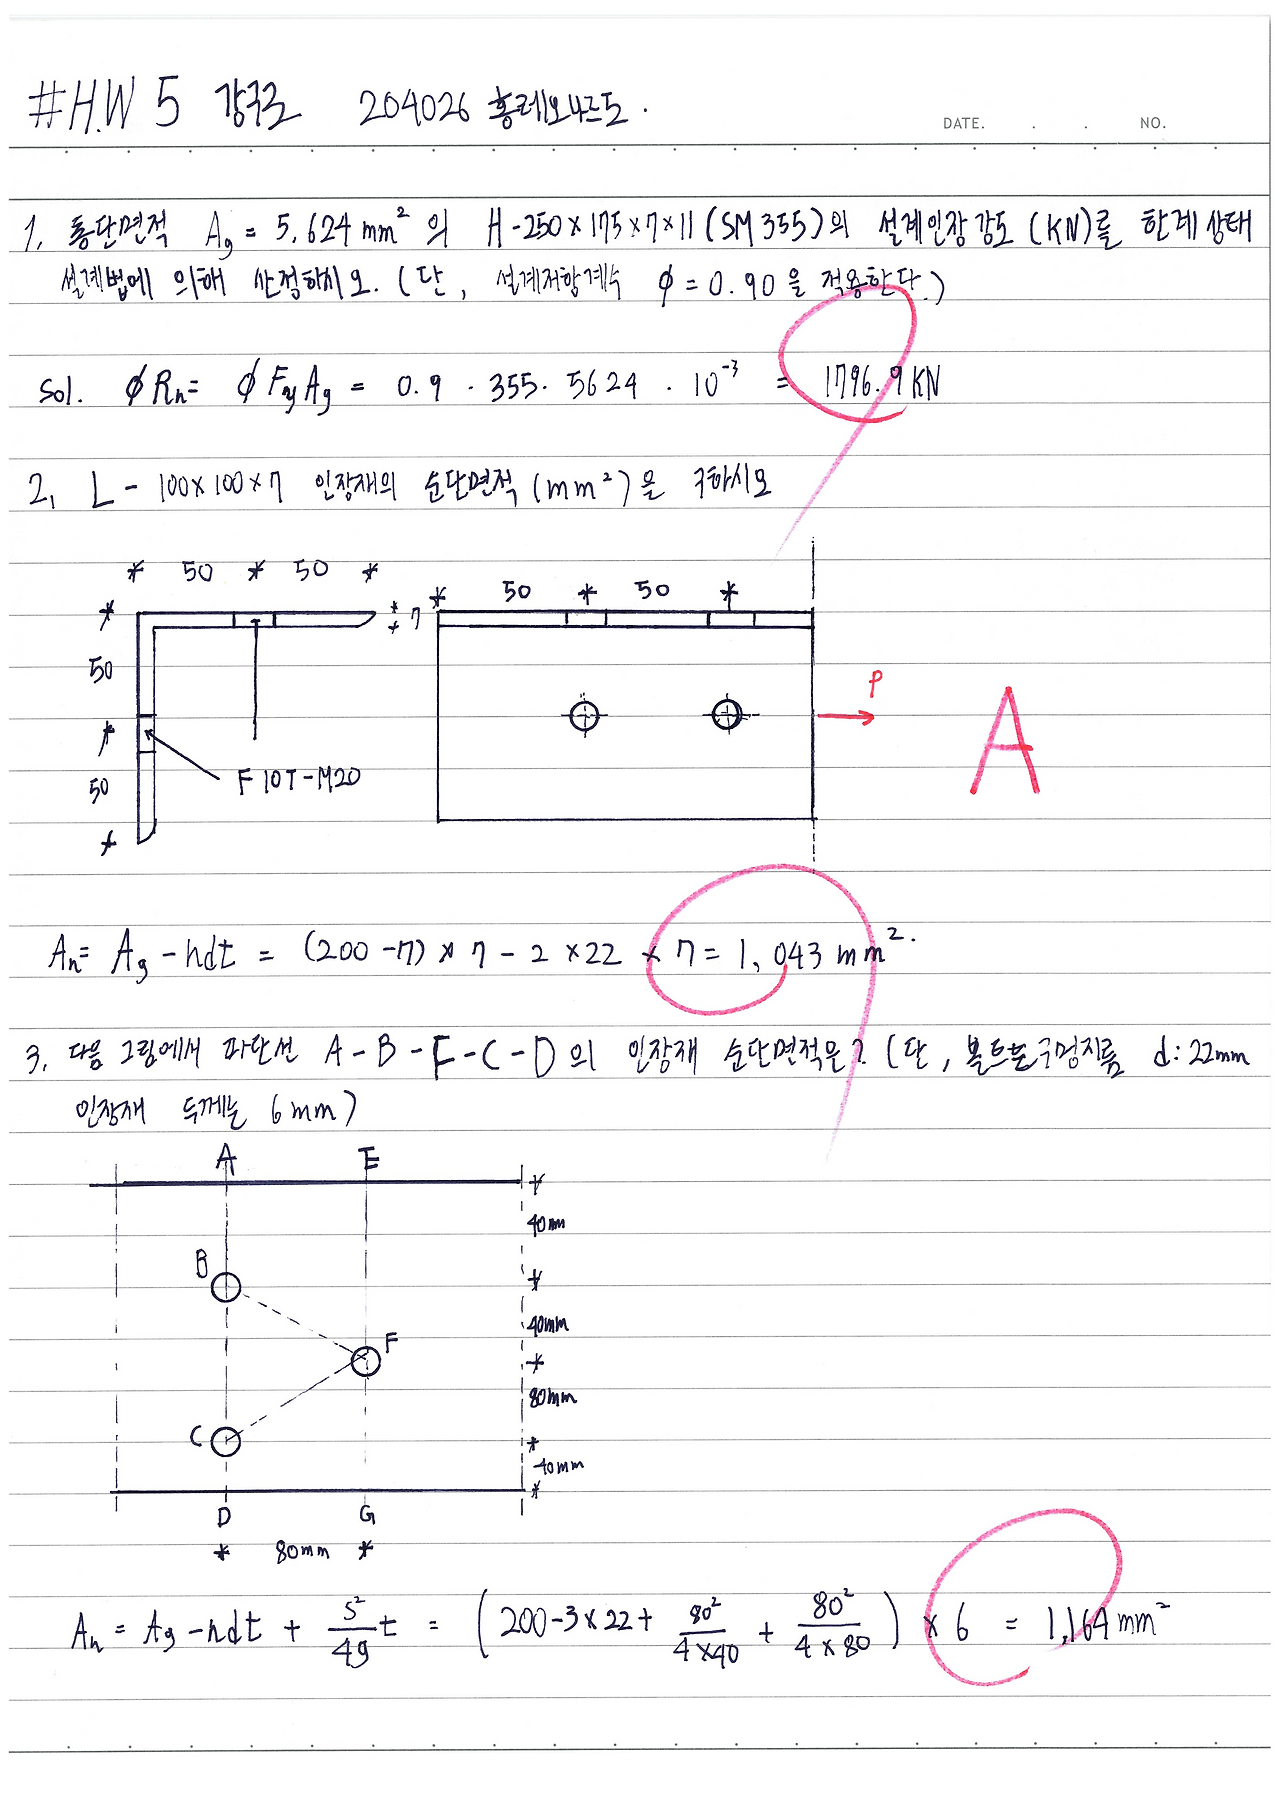 #H.W 5 강구조 204026 홍레오나르도.
DATE. . . NO.
1. 총단면적 Ag = 5,624 mm² 의 H-250×175×7×11 (SM355)의 설계인장강도 (KN)를 한계상태
설계법에 의해 산정하시오. (단, 설계저항계수 φ = 0.90 을 적용한다.)
Sol. φRn = φFyAg = 0.9 · 355 · 5624 · 10⁻³ = 1796.9 KN
2. L - 100×100×7 인장재의 순단면적 (mm²)을 구하시오
50 50
7
50 50
50
50
F10T-M20
P
A
An = Ag - ndt = (200 - 7) × 7 - 2 × 22 × 7 = 1,043 mm².
3. 다음 그림에서 파단선 A-B-F-C-D의 인장재 순단면적은? (단, 볼트는 구멍지름 d: 22mm
인장재 두께는 6mm)
A E
40mm
B
40mm
F
80mm
C
40mm
D G
80mm
An = Ag - ndt + s²/4g t = (200 - 3×22 + 80²/4×40 + 80²/4×80) × 6 = 1,164 mm²